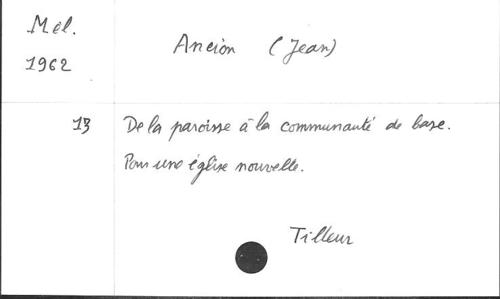 Mél.
Ancion (Jean)
1962
13 De la paroisse à la communauté de base.
Pour une église nouvelle.
Tilleur